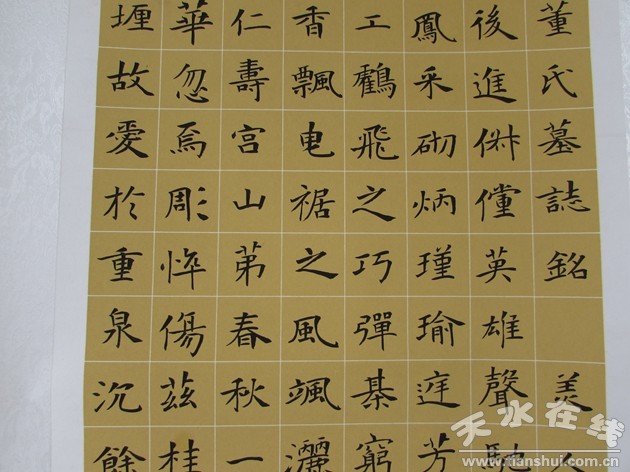 董氏墓誌銘 美
後進俶儻英雄聲馳
鳳采砌炳瑾瑜庭芳
工鸖飛之巧彈棊窮
香飄曳裾之風颯灑
仁壽宮山第春秋一
華忽焉彫悴傷茲桂
堙故愛於重泉沉餘
天水在线
www.tianshui.com.cn